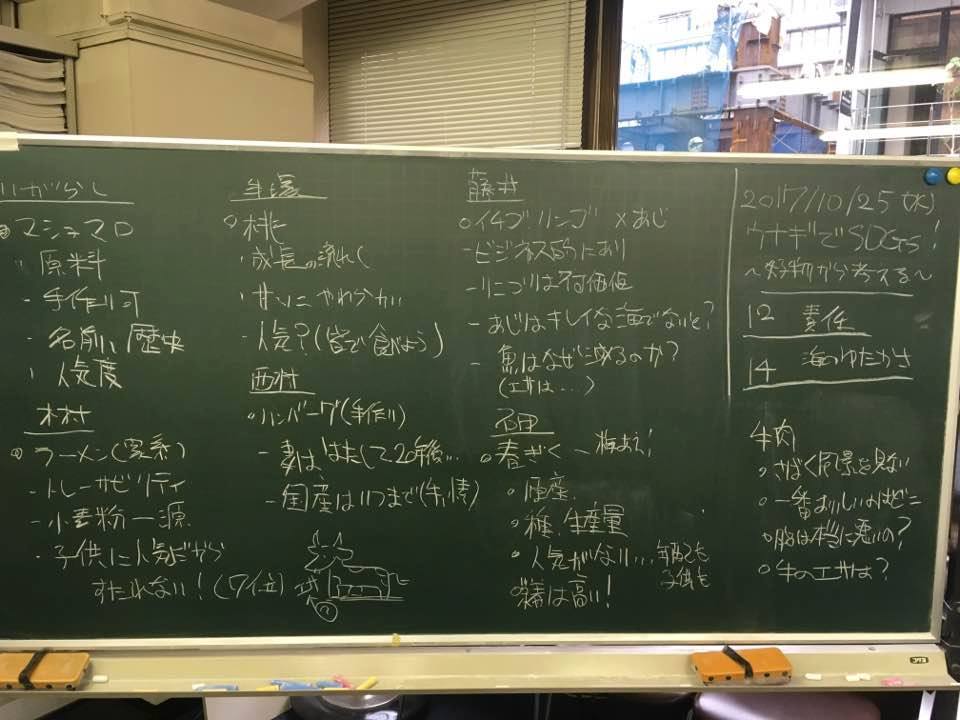 いがらし
マシュマロ
原料
・手作り可
・名前、歴史
人気度
木村
ラーメン(家系)
・トレーサビリティ
・小麦粉一源
・子供に人気だから
すたれない!(7位)
桃
・成長の流れ
・甘い やわらかい
・人気?(皆で食べよう)
西村
ハンバーグ(手作り)
・妻ははたして20年後…
・国産はいつまで(牛)
藤井
○イチゴ リンゴ × あじ
-ビジネス的にあり
-リンゴは付加価値
-あじはキレイな海でないと?
-魚はなぜ減るのか?
(エサは…)
春ぎく
・原産
・種、生産量
・人気がない…
子供も
は高い!
2017/10/25(水)
ウナギでSDGs!
~好物から考える~
12 責任
14 海のゆたかさ
牛肉
・さばく風景を見ない
・一番おいしいのはどこ
・脂は本当に悪いの?
・牛のエサは?